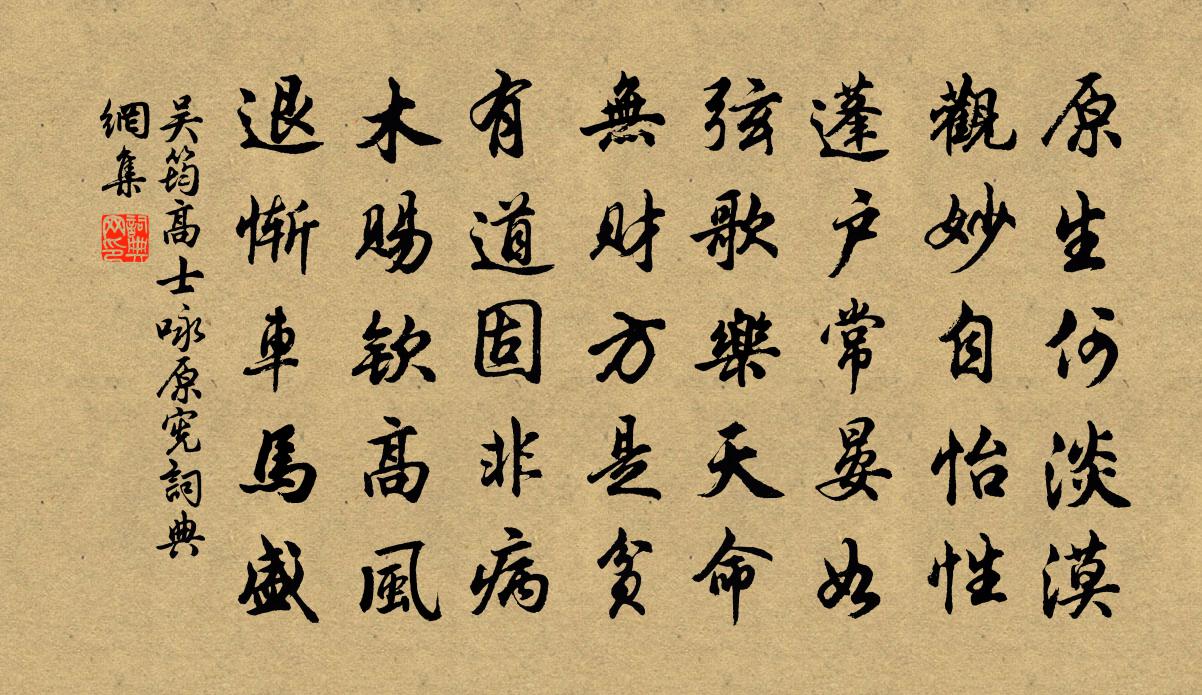 原生何淡漠
觀妙自怡性
蓬户常晏如
弦歌樂天命
無财方是貧
有道固非病
木賜欽高風
退慚車馬盛
吴筠高士咏原宪詞典
網集
詞典
网印